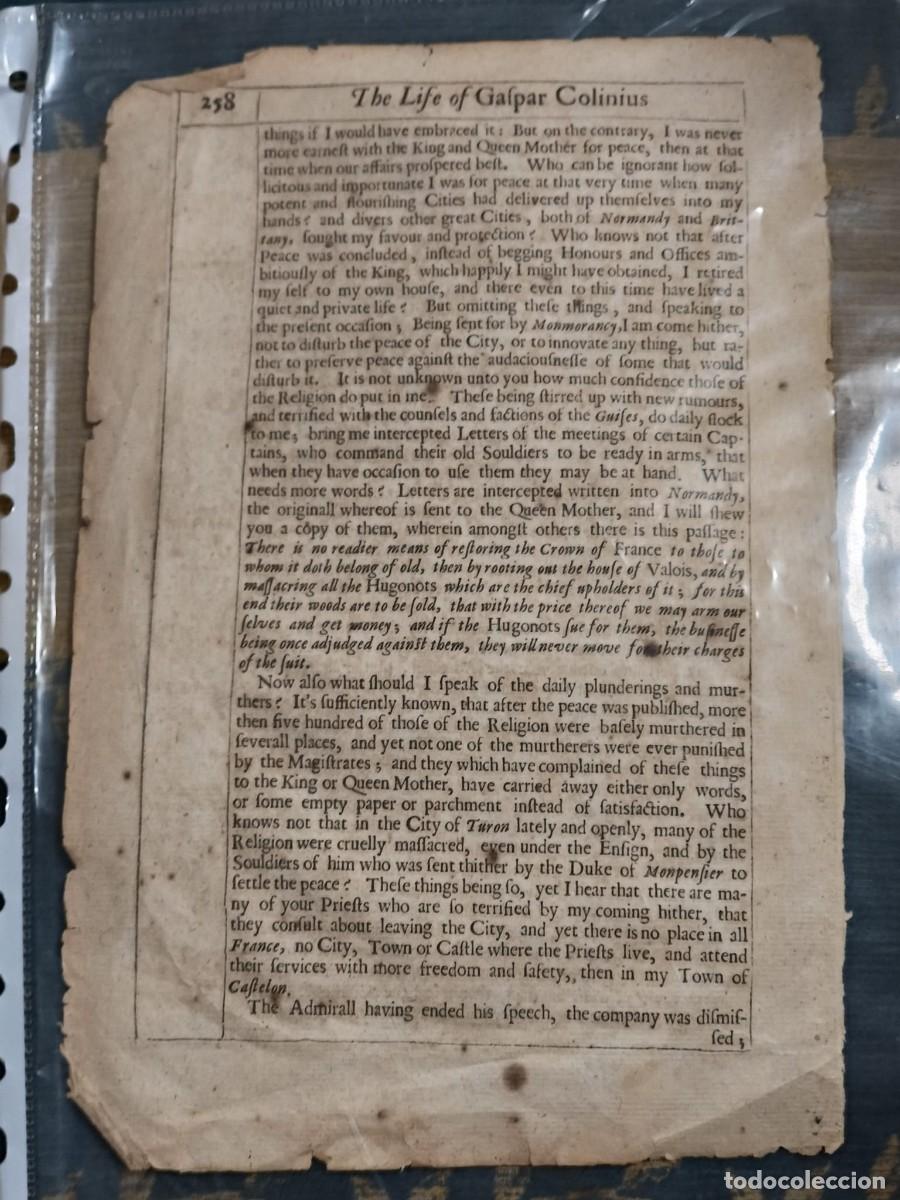 258
The Life of Gaſpar Colinius
things if I would have embraced it: But on the contrary, I was never
more earneſt with the King and Queen Mother for peace, then at that
time when our affairs proſpered beſt. Who can be ignorant how ſol-
licitous and importunate I was for peace at that very time when many
potent and flouriſhing Cities had delivered up themſelves into my
hands? and divers other great Cities, both of Normandy and Brit-
tany, ſought my favour and protection? Who knows not that after
Peace was concluded, inſtead of begging Honours and Offices am-
bitiouſly of the King, which happily I might have obtained, I retired
my ſelf to my own houſe, and there even to this time have lived a
quiet and private life? But omitting theſe things, and ſpeaking to
the preſent occaſion; Being ſent for by Monmorancy, I am come hither,
not to diſturb the peace of the City, or to innovate any thing, but ra-
ther to preſerve peace againſt the audaciouſneſſe of ſome that would
diſturb it. It is not unknown unto you how much confidence thoſe of
the Religion do put in me. Theſe being ſtirred up with new rumours,
and terrified with the counſels and factions of the Guiſes, do daily flock
to me; bring me intercepted Letters of the meetings of certain Cap-
tains, who command their old Souldiers to be ready in arms, that
when they have occaſion to uſe them they may be at hand. What
needs more words? Letters are intercepted written into Normandy,
the originall whereof is ſent to the Queen Mother, and I will ſhew
you a copy of them, wherein amongſt others there is this paſſage:
There is no readier means of reſtoring the Crown of France to thoſe to
whom it doth belong of old, then by rooting out the houſe of Valois, and by
maſſacring all the Hugonots which are the chief upholders of it; for this
end their woods are to be ſold, that with the price thereof we may arm our
ſelves and get money; and if the Hugonots ſue for them, the buſineſſe
being once adjudged againſt them, they will never move for their charges
of the ſuit.
Now alſo what ſhould I ſpeak of the daily plunderings and mur-
thers? It's ſufficiently known, that after the peace was publiſhed, more
then five hundred of thoſe of the Religion were baſely murthered in
ſeverall places, and yet not one of the murtherers were ever puniſhed
by the Magiſtrates; and they which have complained of theſe things
to the King or Queen Mother, have carried away either only words,
or ſome empty paper or parchment inſtead of ſatisfaction. Who
knows not that in the City of Turon lately and openly, many of the
Religion were cruelly maſſacred, even under the Enſign, and by the
Souldiers of him who was ſent thither by the Duke of Monpenſier to
ſettle the peace? Theſe things being ſo, yet I hear that there are ma-
ny of your Prieſts who are ſo terrified by my coming hither, that
they conſult about leaving the City, and yet there is no place in all
France, no City, Town or Caſtle where the Prieſts live, and attend
their ſervices with more freedom and ſafety, then in my Town of
Caſtelon.
The Admirall having ended his ſpeech, the company was diſmiſ-
ſed;
todocoleccion